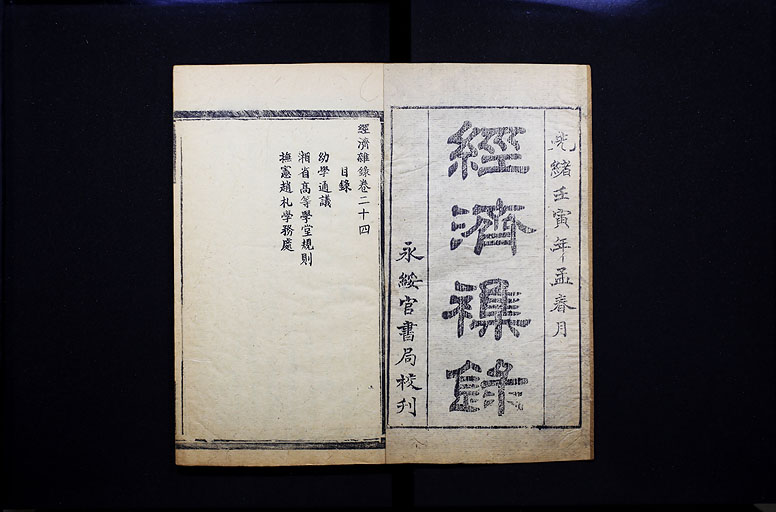 光緒壬寅年孟春月
經濟襍錄
永綏官書局校刋
經濟雜錄卷二十四
目錄
幼學通議
湘省高等學堂規則
撫憲趙札学務處